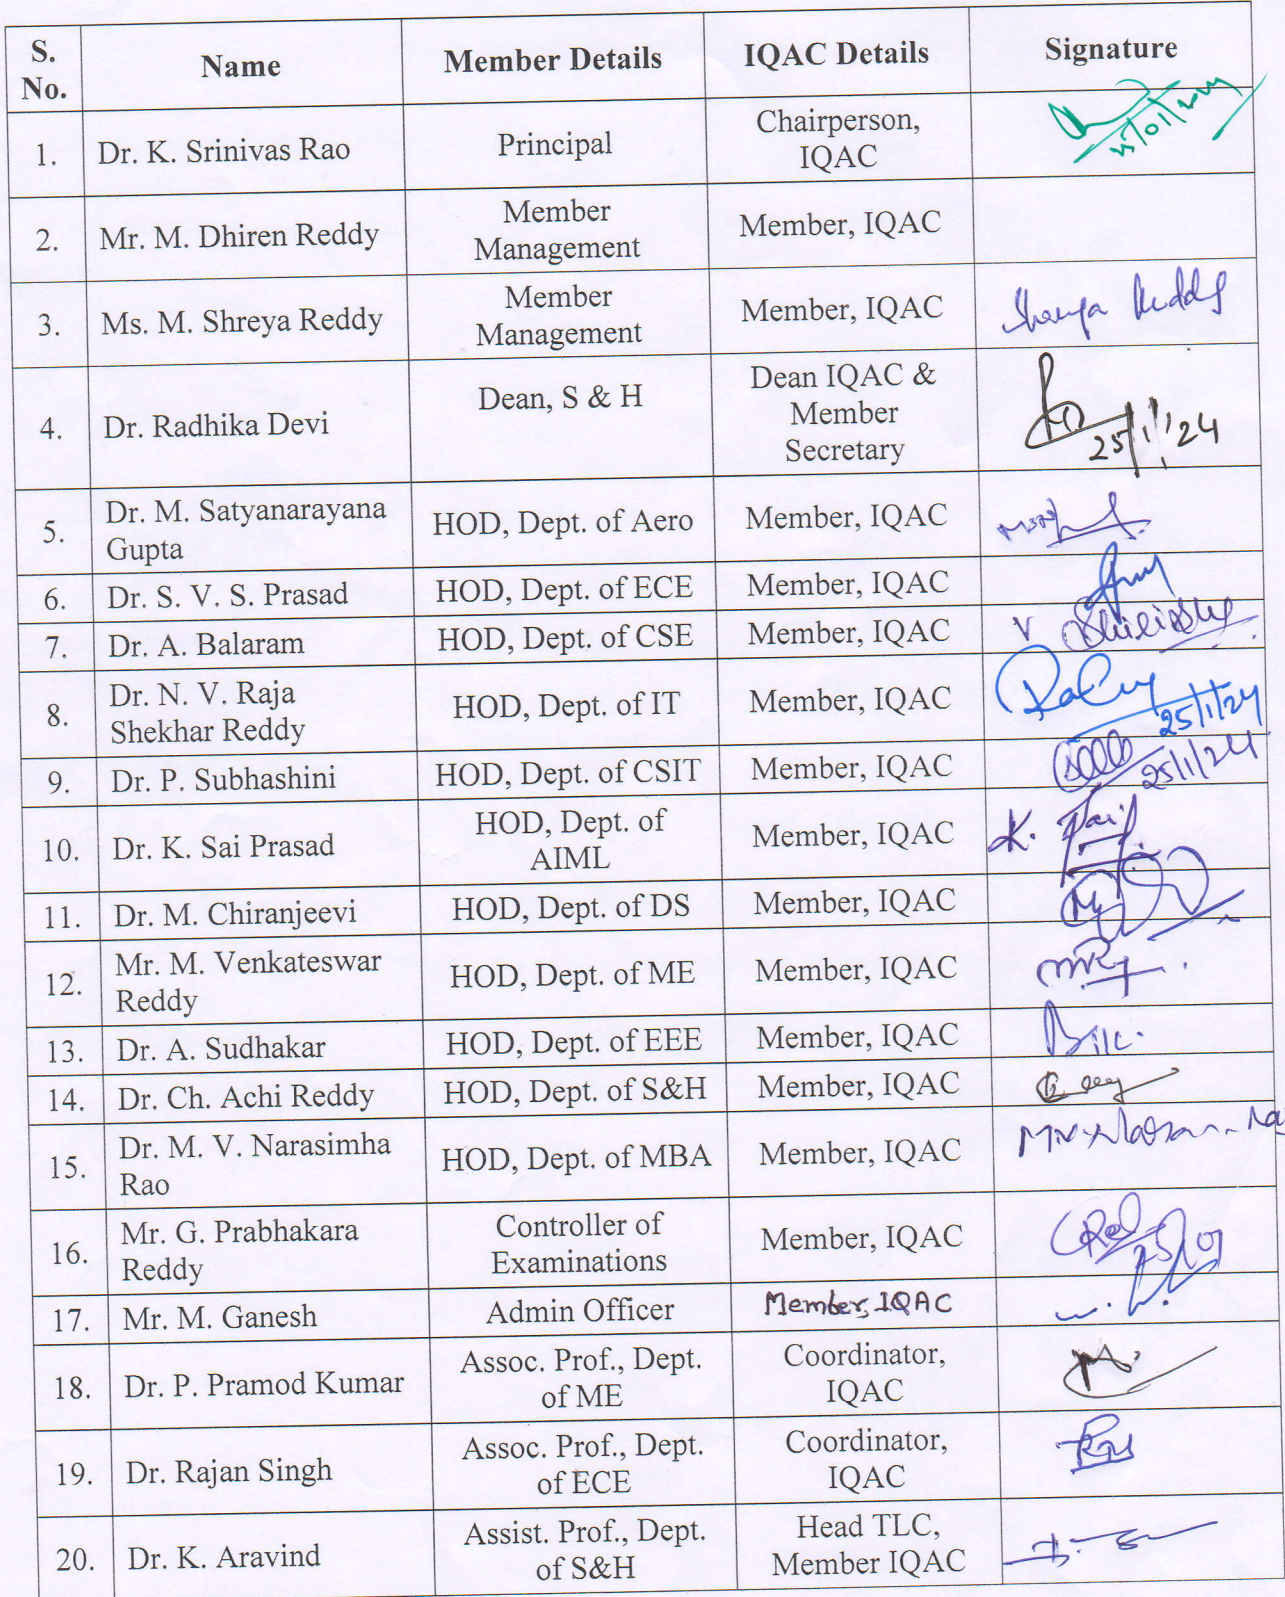 S. No. Name Member Details IQAC Details Signature
1. Dr. K. Srinivas Rao Principal Chairperson, IQAC
2. Mr. M. Dhiren Reddy Member Management Member, IQAC
3. Ms. M. Shreya Reddy Member Management Member, IQAC Shreya Reddy
4. Dr. Radhika Devi Dean, S & H Dean IQAC & Member Secretary 25/1/24
5. Dr. M. Satyanarayana Gupta HOD, Dept. of Aero Member, IQAC
6. Dr. S. V. S. Prasad HOD, Dept. of ECE Member, IQAC
7. Dr. A. Balaram HOD, Dept. of CSE Member, IQAC
8. Dr. N. V. Raja Shekhar Reddy HOD, Dept. of IT Member, IQAC 25/1/24
9. Dr. P. Subhashini HOD, Dept. of CSIT Member, IQAC 25/1/24
10. Dr. K. Sai Prasad HOD, Dept. of AIML Member, IQAC
11. Dr. M. Chiranjeevi HOD, Dept. of DS Member, IQAC
12. Mr. M. Venkateswar Reddy HOD, Dept. of ME Member, IQAC
13. Dr. A. Sudhakar HOD, Dept. of EEE Member, IQAC
14. Dr. Ch. Achi Reddy HOD, Dept. of S&H Member, IQAC
15. Dr. M. V. Narasimha Rao HOD, Dept. of MBA Member, IQAC
16. Mr. G. Prabhakara Reddy Controller of Examinations Member, IQAC 25/01
17. Mr. M. Ganesh Admin Officer Member, IQAC
18. Dr. P. Pramod Kumar Assoc. Prof., Dept. of ME Coordinator, IQAC
19. Dr. Rajan Singh Assoc. Prof., Dept. of ECE Coordinator, IQAC
20. Dr. K. Aravind Assist. Prof., Dept. of S&H Head TLC, Member IQAC